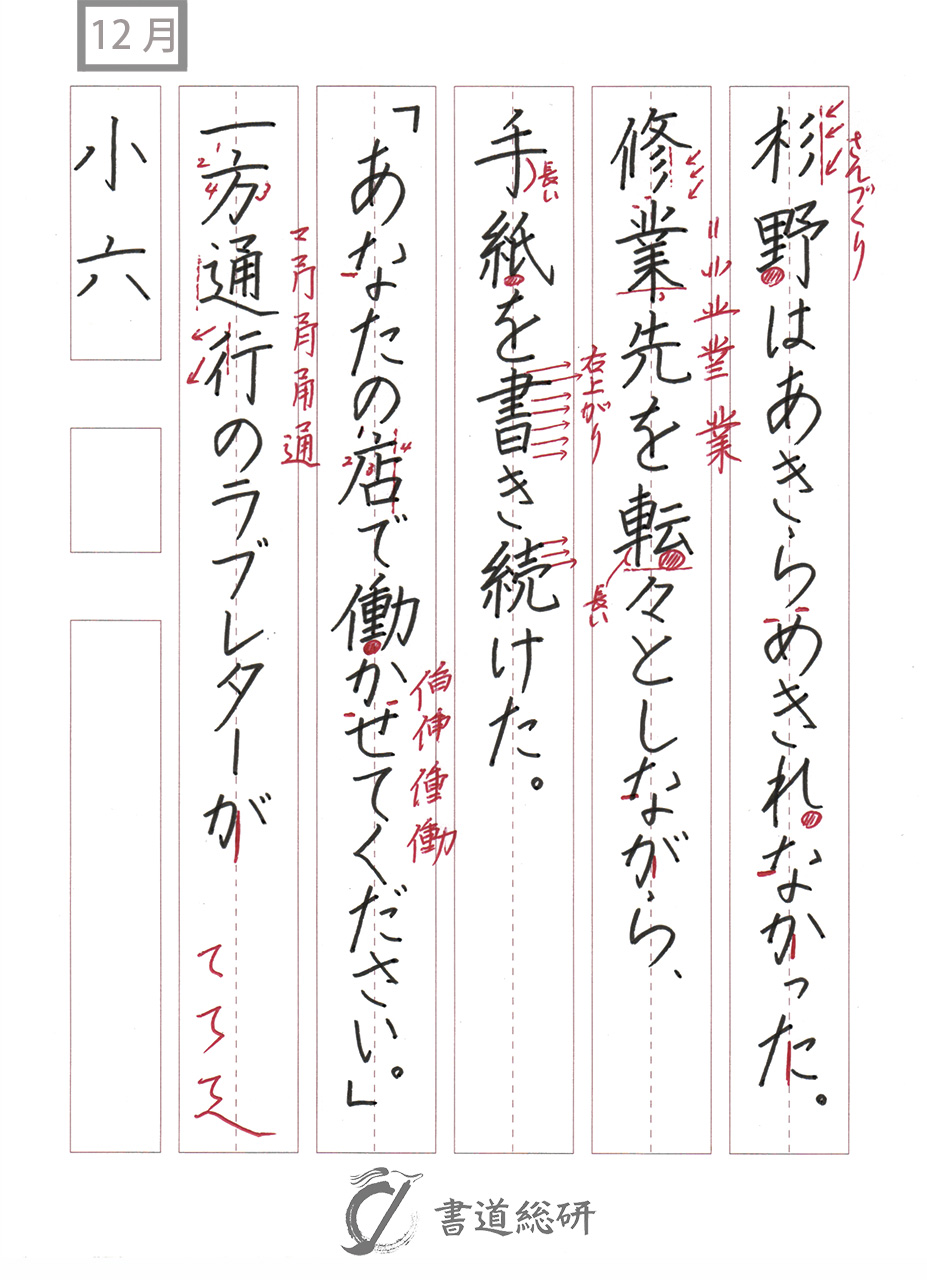 12月
杉野はあきらめきれなかった。
さんづくり
修業先を転々としながら、
業
長い
手紙を書き続けた。
長い
右上がり
「あなたの店で働かせてください。」
1 2 3 4
働
一方通行のラブレターが
1 2 3 4
通
小六
書道総研